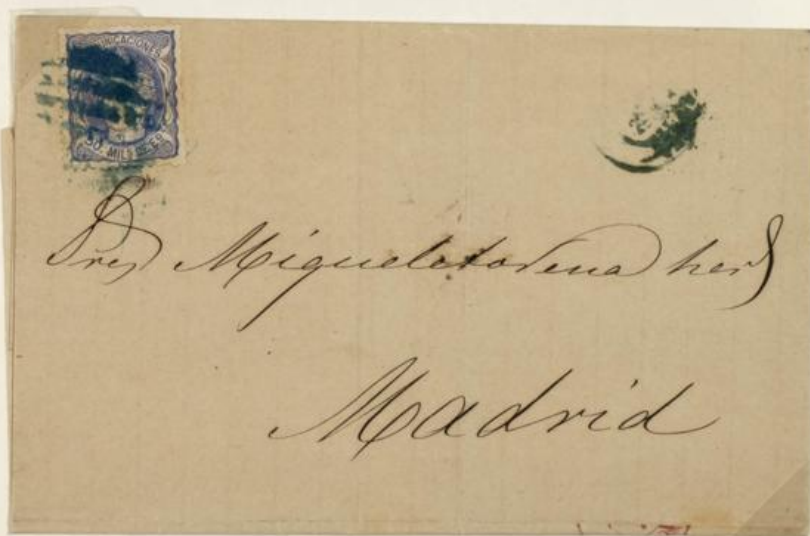 COMUNICACIONES
50. MILS DE Eº
Sres Migueletorena hers
Madrid